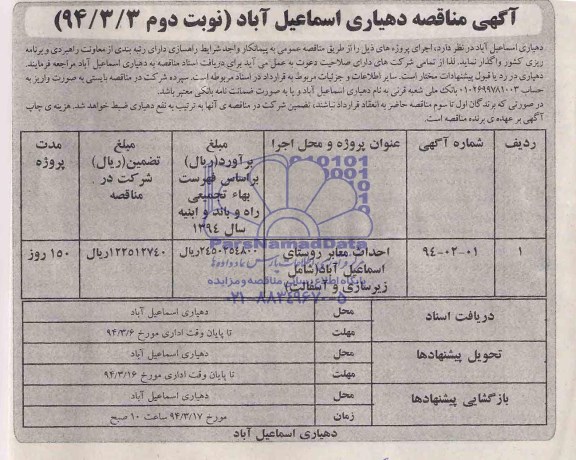 آگهی مناقصه دهیاری اسماعیل آباد (نوبت دوم ۹۴/۳/۳)
دهیاری اسماعیل آباد در نظر دارد، اجرای پروژه های ذیل را از طریق مناقصه عمومی به پیمانکار واجد شرایط راهسازی دارای رتبه بندی از معاونت راهبردی و برنامه
ریزی کشور واگذار نماید. لذا از تمامی شرکت های دارای صلاحیت دعوت به عمل می آید برای دریافت اسناد مناقصه به دهیاری اسماعیل آباد مراجعه فرمایند.
دهیاری در رد یا قبول پیشنهادات مختار است. سایر اطلاعات و جزئیات مربوط به قرارداد در اسناد مربوطه است. سپرده شرکت در مناقصه بایستی به صورت واریز به
حساب ۰۱۰۲۶۹۹۷۸۱۰۰۳ بانک ملی شعبه قرنی به نام دهیاری اسماعیل آباد و یا به صورت ضمانت نامه بانکی معتبر باشد.
در صورتی که برندگان اول تا سوم مناقصه حاضر به انعقاد قرارداد نباشند، تضمین شرکت در مناقصه ی آنها به ترتیب به نفع دهیاری ضبط خواهد شد. هزینه ی چاپ
آگهی بر عهده ی برنده مناقصه است.
ردیف شماره آگهی عنوان پروژه و محل اجرا مبلغ برآورد(ریال) براساس فهرست بهاء تجمیعی راه و باند و ابنیه سال ۱۳۹۴ مبلغ تضمین(ریال) شرکت در مناقصه مدت پروژه
۱ ۹۴-۰۲-۰۱ احداث معابر روستای اسماعیل آباد(شامل زیرسازی و آسفالت) ۲۴۵۰۲۵۴۸۰۰ریال ۱۲۲۵۱۲۷۴۰ریال ۱۵۰ روز
ParsNamadData
پایگاه اطلاع رسانی مناقصه و مزایده
۰۲۱-۸۸۳۴۹۶۷۰-۵
دریافت اسناد محل دهیاری اسماعیل آباد
مهلت تا پایان وقت اداری مورخ ۹۴/۳/۶
تحویل پیشنهادها محل دهیاری اسماعیل آباد
مهلت تا پایان وقت اداری مورخ ۹۴/۳/۱۶
بازگشایی پیشنهادها محل دهیاری اسماعیل آباد
زمان مورخ ۹۴/۳/۱۷ ساعت ۱۰ صبح
دهیاری اسماعیل آباد